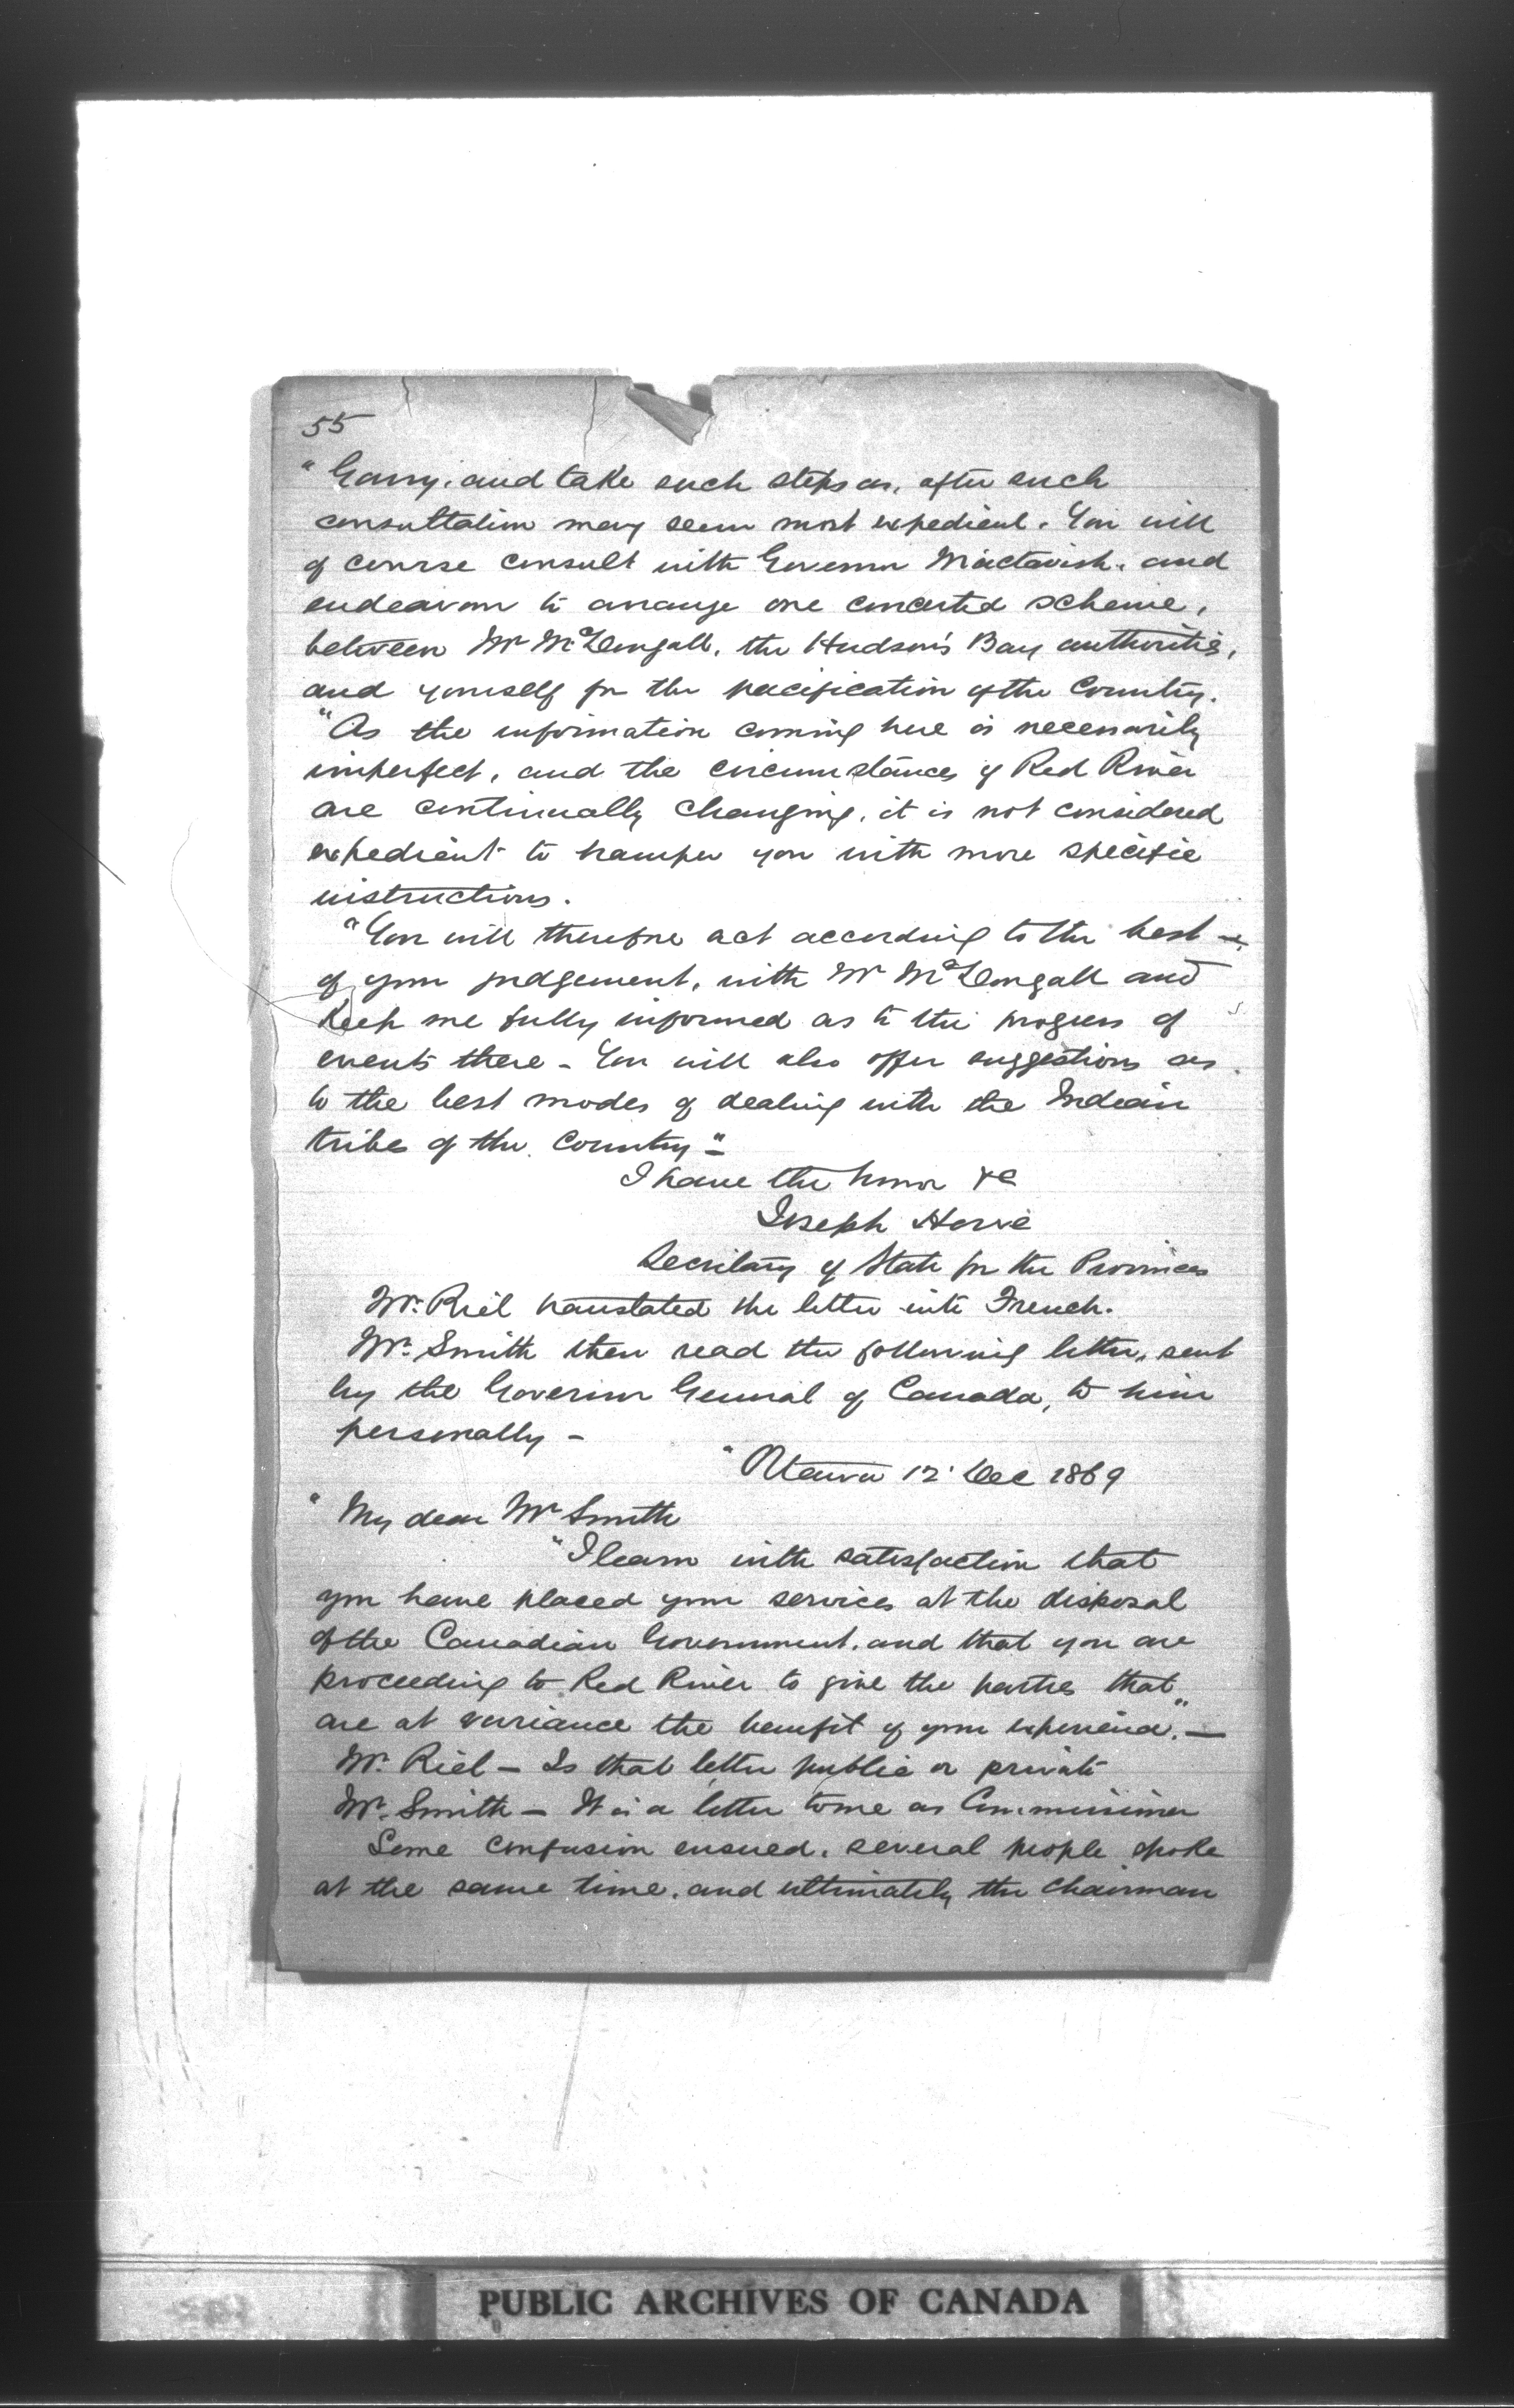 55
"Garry, and take such steps as, after such
consultation may seem most expedient. You will
of course consult with Governor Mactavish, and
endeavour to arrange one concerted scheme,
between Mr McDougall, the Hudson's Bay authorities,
and yourself for the pacification of the Country.
"As the information coming here is necessarily
imperfect, and the circumstances of Red River
are continually changing, it is not considered
expedient to hamper you with more specific
instructions.
"You will therefore act according to the best
of your judgement, with Mr McDougall and
keep me fully informed as to the progress of
events there - You will also offer suggestions as
to the best modes of dealing with the Indian
tribes of the Country"
I have the honor &c
Joseph Howe
Secretary of State for the Provinces
Mr. Riel translated the letter into French.
Mr. Smith then read the following letter, sent
by the Governor General of Canada, to him
personally -
"Ottawa 12 Dec 1869
"My dear Mr Smith
"I learn with satisfaction that
you have placed your services at the disposal
of the Canadian Government, and that you are
proceeding to Red River to give the parties that
are at variance the benefit of your experience." —
Mr. Riel — Is that letter public or private
Mr. Smith — It is a letter to me as Commissioner
Some confusion ensued, several people spoke
at the same time, and ultimately the Chairman
PUBLIC ARCHIVES OF CANADA